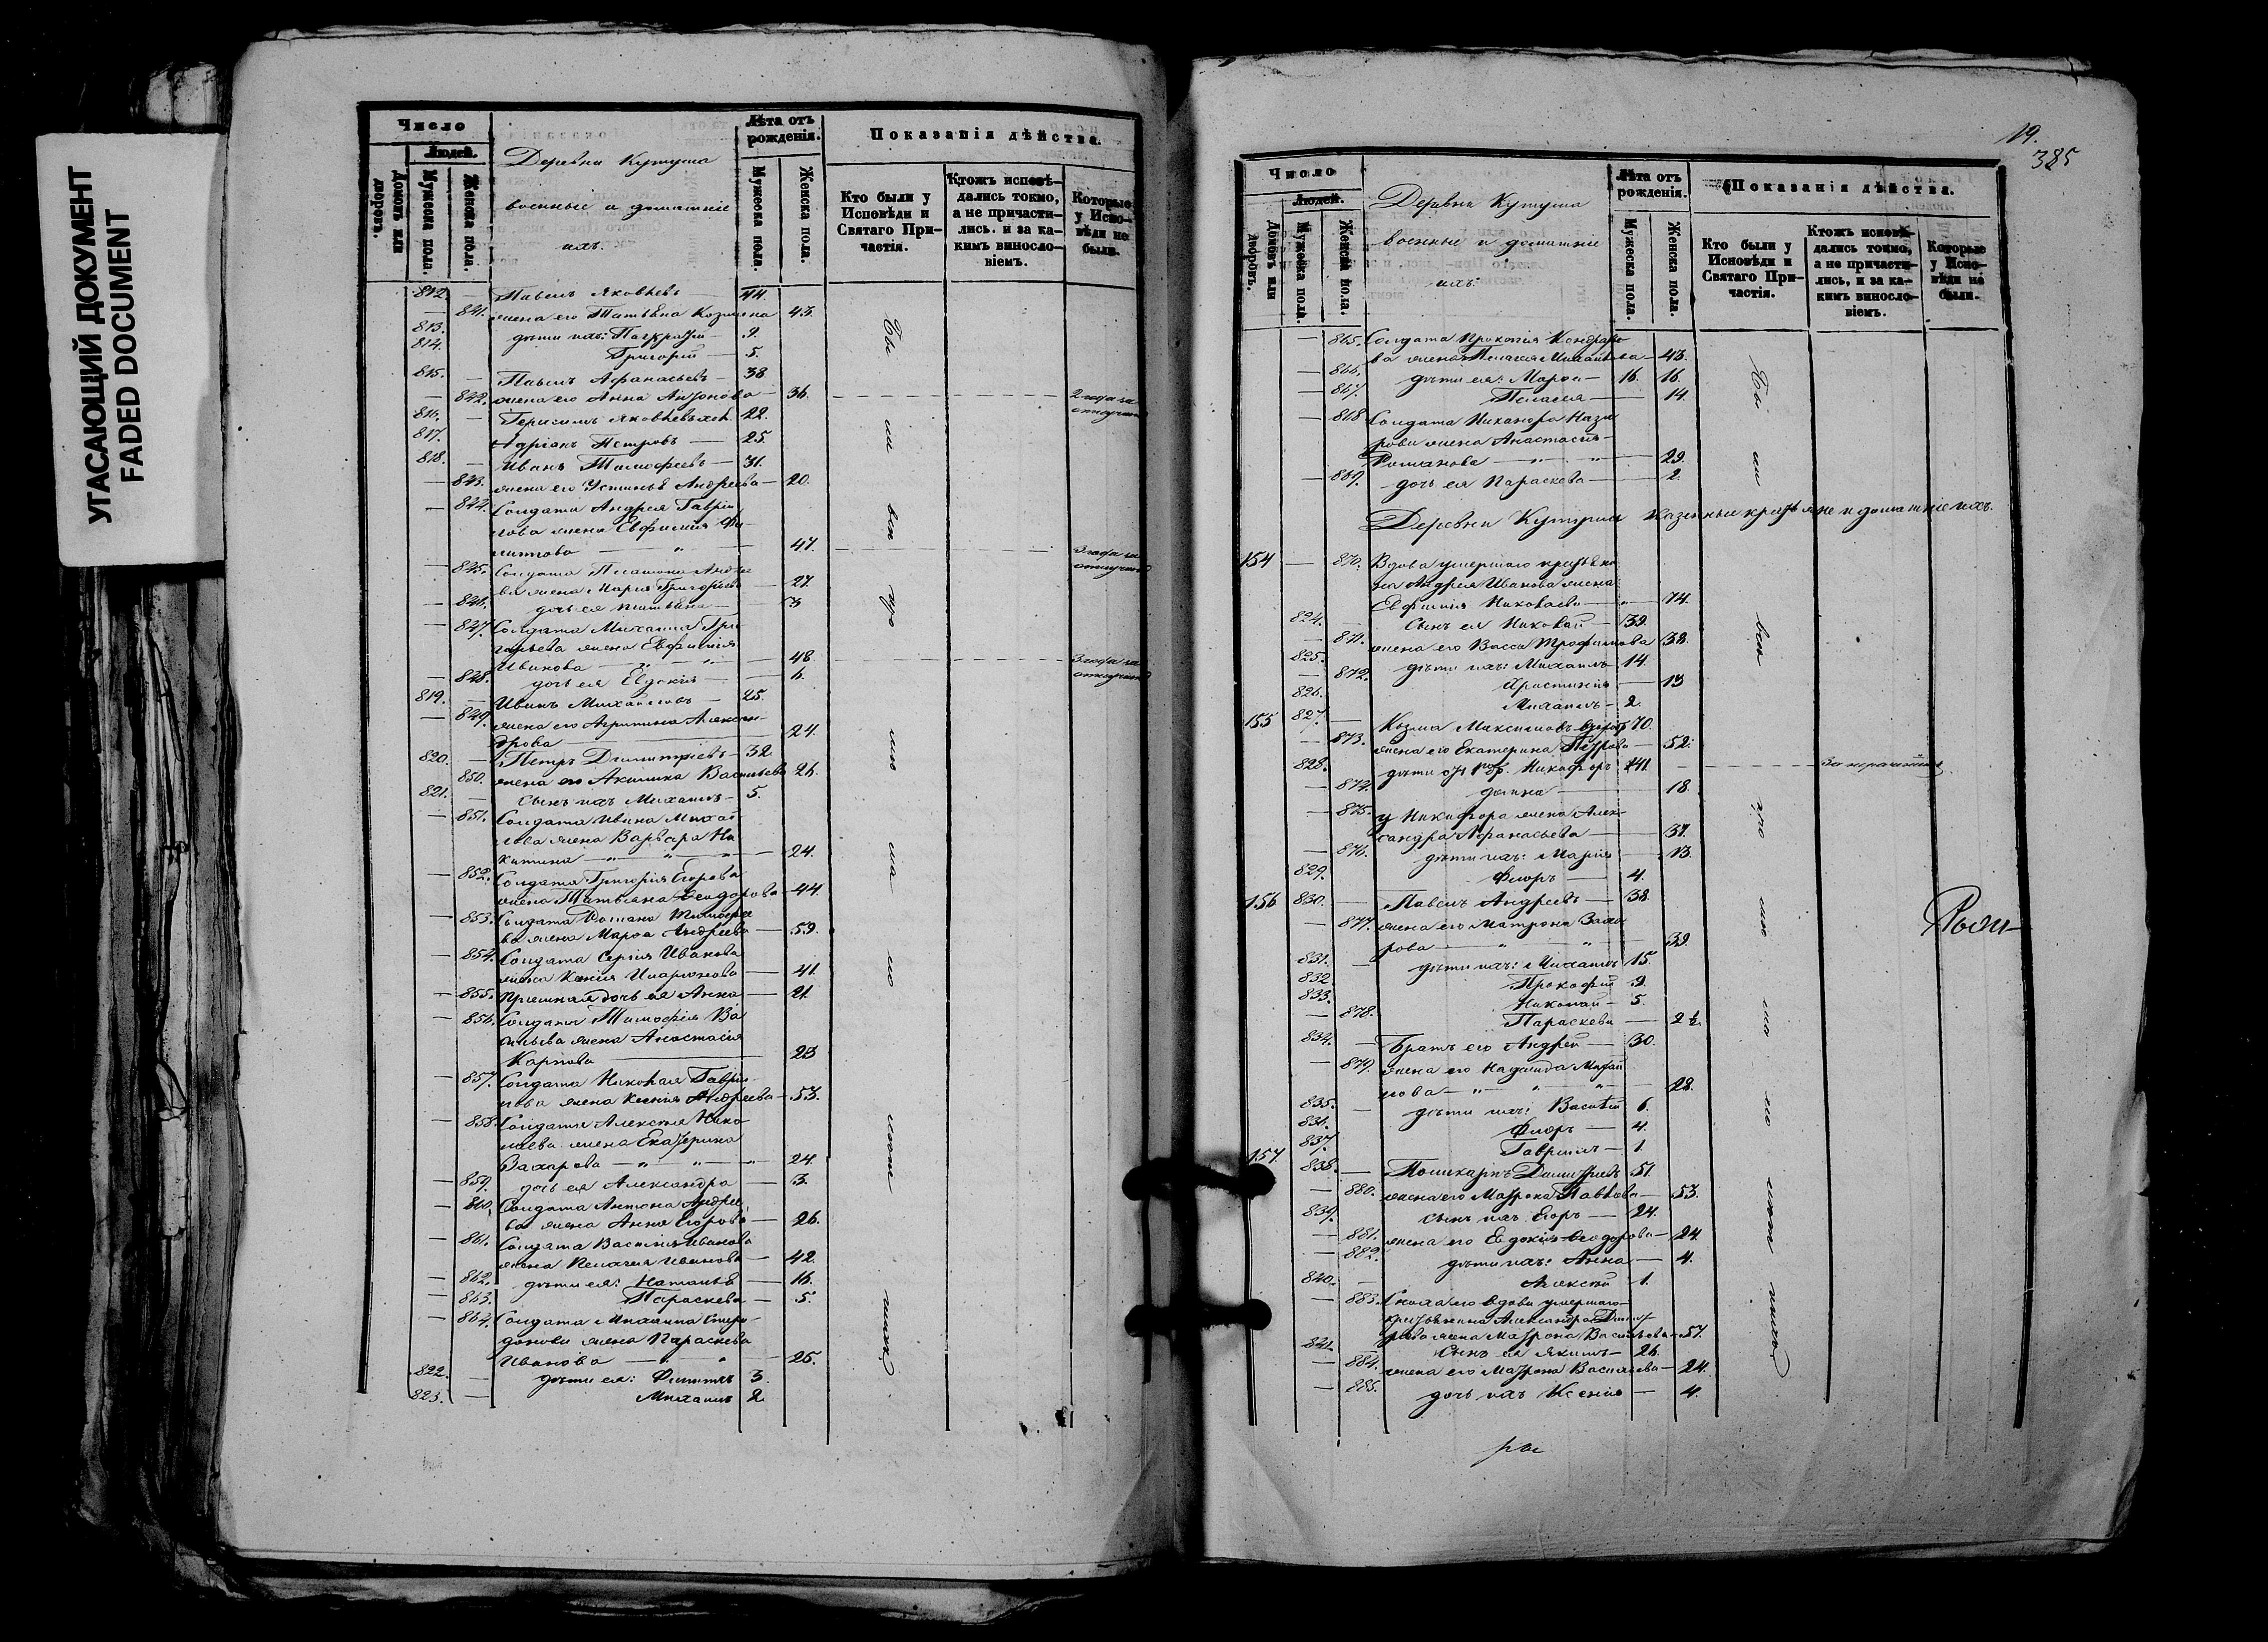 УГАСАЮЩИЙ ДОКУМЕНТ
FADED DOCUMENT
Число
Людей.
Домовъ или дворовъ.
Мужеска пола.
Женска пола.
Деревни Кутуша
военные и домашніе
ихъ.
Лѣта отъ рожденія.
Мужеска пола.
Женска пола.
Показанія дѣйства.
Кто были у Исповѣди и Святаго Причастія.
Ктожъ исповѣдались токмо, а не причастились. и за какимъ винословіемъ.
Которые у Исповѣди не были.
812. — Павелъ Яковлевъ — 44.
— 841. жена его Татьяна Козмина 43.
813. дѣти ихъ: — 9.
814. Григорій — 5.
815. — Павелъ Афанасьевъ — 38
— 842. жена его Анна Антонова — 36. 2 года за отлучкою
816. — Герасимъ Яковлевъ 22.
817. Адріанъ Петровъ — 25.
818. — Иванъ Тимофеевъ — 31.
— 843. жена его Устинья Андреева — 20.
— 844. Солдата Андрея Гаврилова жена Евфимія Филиппова — 47. 3 года за отлучкою
— 845. Солдата жена Марія Григорьева — 27.
— 846. дочь ея Татьяна — 3
— 847. Солдата Михаила Григорьева жена Евфимія
Иванова — " — " — 48. 3 года за отлучкою
— 848. дочь ея Евдокія — 6.
819. — Иванъ Михайловъ — 25.
— 849. жена его Агрипина Александрова — 24.
820. — Петръ Димитріевъ — 32.
850. жена его Акилина Васильева 26.
821. — сынъ ихъ Михаилъ — 5.
— 851. Солдата Ивана Михайлова жена Варвара Никитина — " — " — 24.
— 852. Солдата Григорія Егорова
жена Татьяна Ѳеодорова — 44
— 853. Солдата Романа Тимофеева жена Марѳа Андреева — 59.
— 854. Солдата Сергія Иванова
жена Ксенія Иларіонова — 41
— 855. дочь ея Анна — 21
— 856. Солдата Тимофея Васильева жена Анастасія
Карпова — 23
— 857. Солдата Николая Гаврилова жена Ксенія Андреева — 53.
— 858. Солдата Алексея Николаева жена Екатерина
Захарова — " — " — 24.
— 859. дочь ея Александра — 3.
— 860. Солдата Антона Андреева жена Анна Егорова — 26.
— 861. Солдата Василія Иванова
жена Пелагія Иванова — 42.
— 862. дѣти ея: Наталья — 16.
— 863. Параскева — 5.
— 864. Солдата Михаила Спиридонова жена Параскева
Иванова — " — 25.
822. — дѣти ея: Филиппъ 3.
823. — Михаилъ 2.
19.
385
Число
Людей.
Домовъ или дворовъ.
Мужеска пола.
Женска пола.
Деревни Кутуша
военные и домашніе
ихъ.
Лѣта отъ рожденія.
Мужеска пола.
Женска пола.
Показанія дѣйства.
Кто были у Исповѣди и Святаго Причастія.
Ктожъ исповѣдались токмо, а не причастились, и за какимъ винословіемъ.
Которые у Исповѣди не были.
— 865. Солдата Прокопія Кондратова жена Пелагея Михайлова — 43.
— 866. дѣти ея: Марѳа — 16. 16.
— 867. Пелагея — 14.
— 868 Солдата Никанора Назарова жена Анастасія
Романова — " — " — 29
— 869. дочь ея Параскева — 2.
Деревни Кутуша казенные крестьяне и домашніе ихъ.
154 — 870. Вдова умершаго крестьянина Андрея Иванова жена
Евфимія Николаева — " — 74.
824. — сынъ ея Николай — 39.
— 871. жена его Васса Трофимова 38.
825. дѣти ихъ: Михаилъ 14.
— 872. Христинія — 13
826. Михаилъ — 2.
155 827. — Козма Максимовъ 70.
— 873. жена его Екатерина Петрова — 52.
828. дѣти отъ Никифоръ 41
— 874. — 18.
— 875. у Никифора жена Александра Афанасьева — 37.
— 876. дѣти ихъ: Марія — 13.
829. Флоръ — 4.
156 830. — Павелъ Андреевъ — 38.
— 877. жена его Матрона Захарова — " — " — 39.
831. — дѣти ихъ: Михаилъ 15.
832. Прокофій 9.
833. Николай — 5.
— 878. Параскева — 2 ½.
834. — Братъ его Андрей — 30.
— 879. жена его Надежда Михайлова — " — " — " — 28.
835. — дѣти ихъ: Василій 6.
836. Флоръ — 4.
837. Гавріилъ — 1.
157 838. — Поликарпъ Димитріевъ 51.
— 880. жена его Матрона Павлова — 53.
839. сынъ ихъ Егоръ — 24.
— 881. жена его Евдокія Ѳеодорова — 24.
— 882. дѣти ихъ: Анна — 4.
840. — Алексѣй — 1.
— 883. Сноха его вдова умершаго
крестьянина Александра Димитріева жена Матрона Васильева — 57.
841. сынъ ея Якимъ — 26.
— 884. жена его Матрона Васильева — 24.
— 885. дочь ихъ Ксенія — 4.